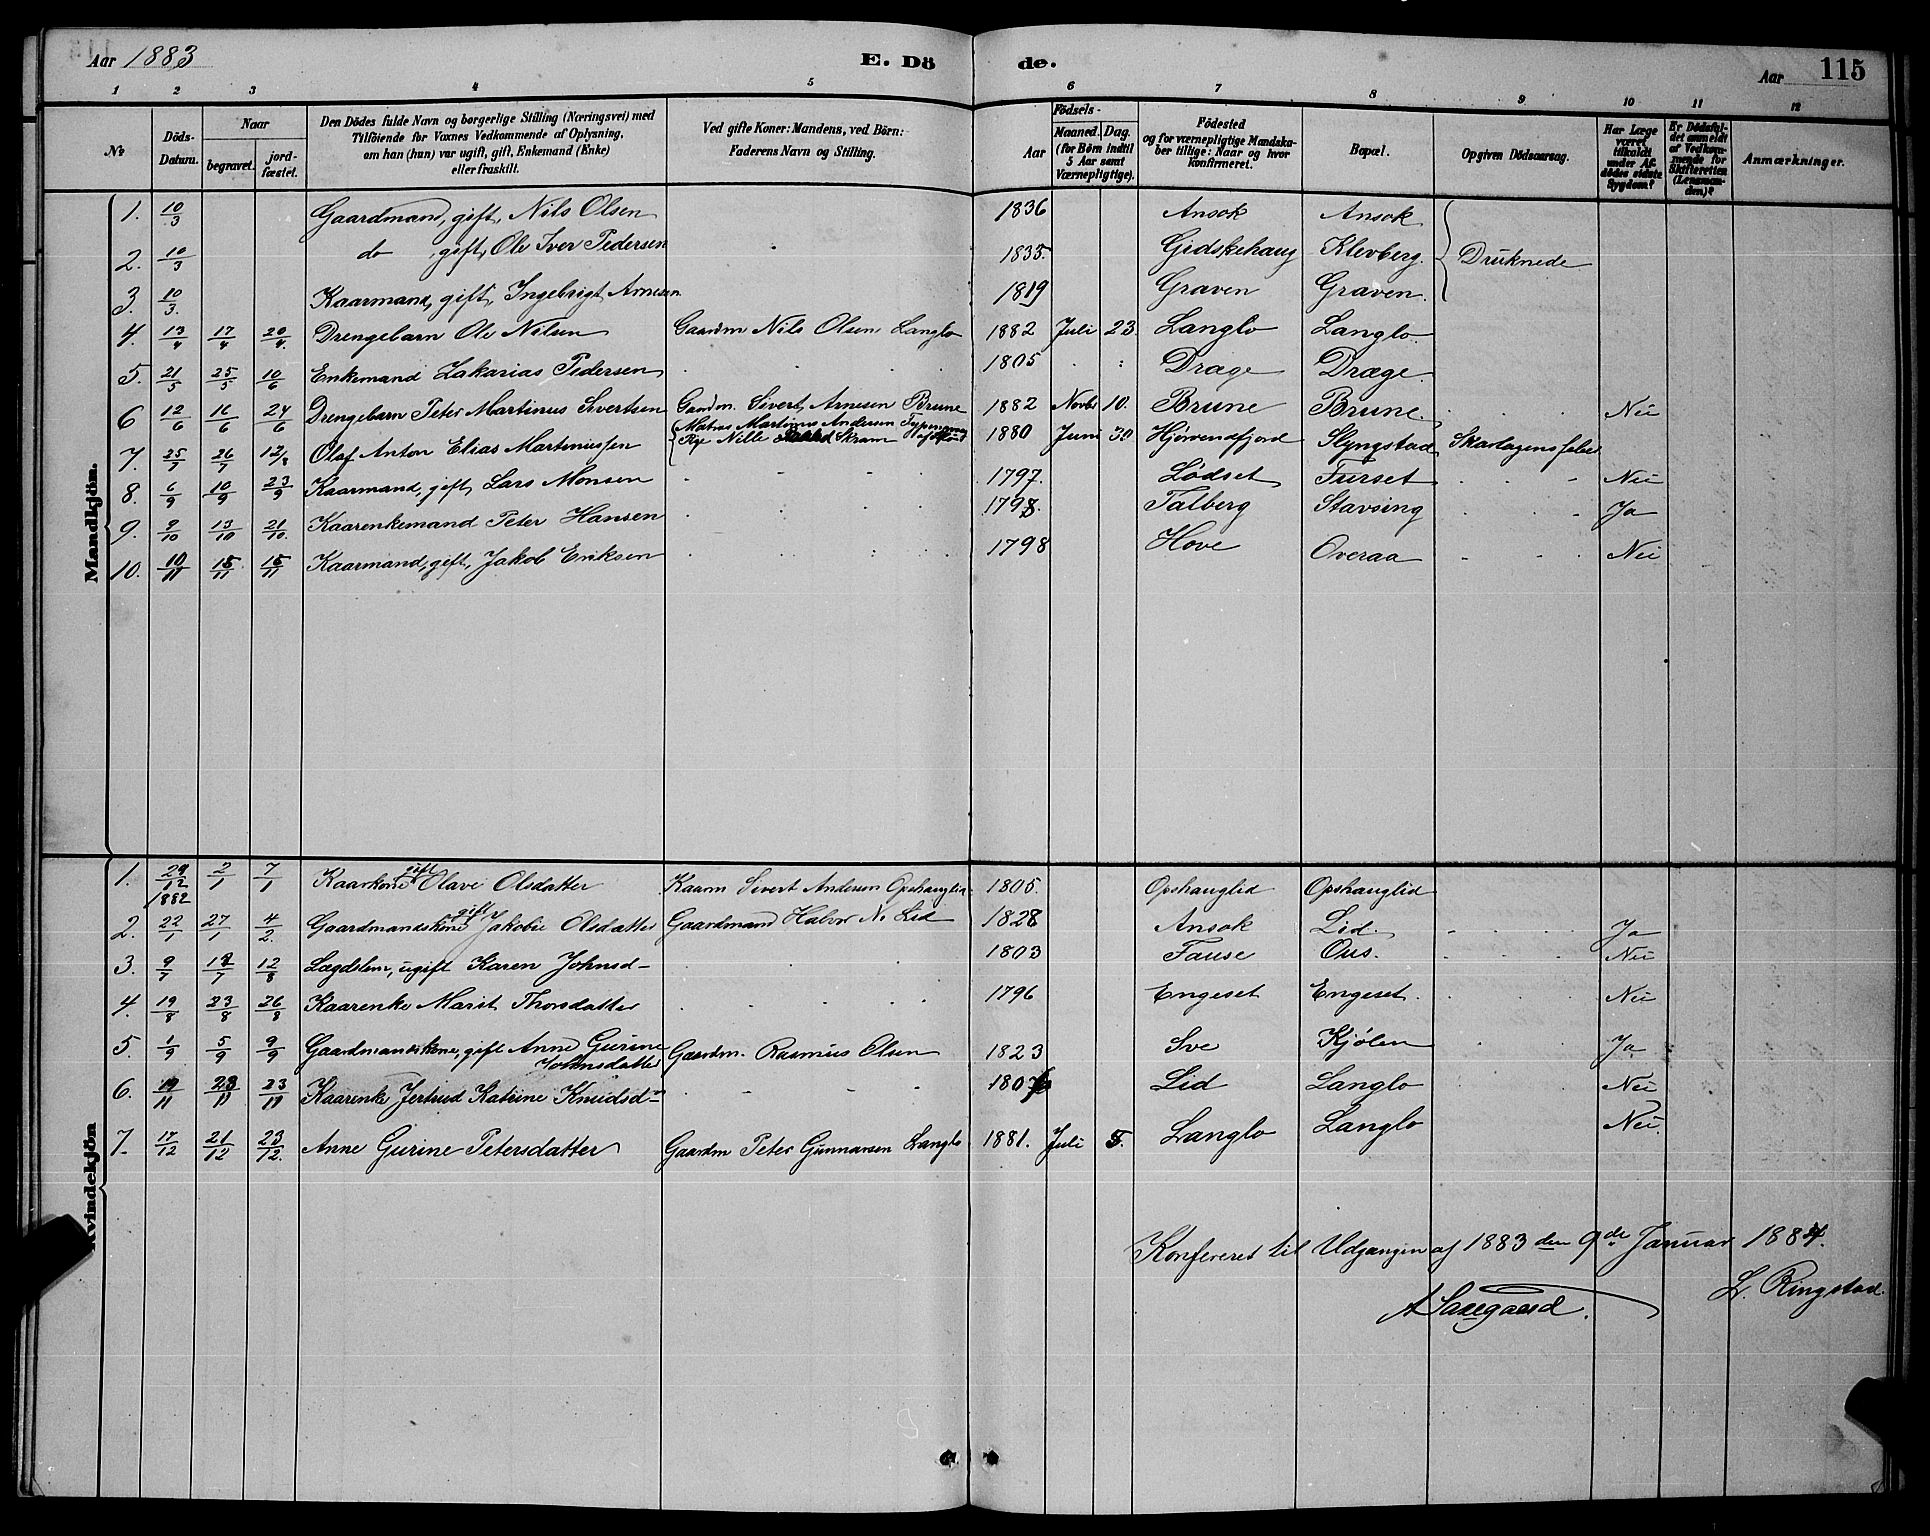 Aar 1883 E. Döde. Aar 115
1 2 3 4 5 6 7 8 9 10 11 12
No
Döds-Datum.
Naar
begravet.
jord-fæstet.
Den Dödes fulde Navn og borgerlige Stilling (Næringsvei) med
Tilföiende for Voxnes Vedkommende af Oplysning,
om han (hun) var ugift, gift, Enkemand (Enke)
eller fraskilt.
Ved gifte Koner: Mandens, ved Börn:
Faderens Navn og Stilling.
Födsels-
Aar
Maaned. Dag.
(for Börn indtil
5 Aar samt
Værnepligtige).
Födested
og for værnepligtige Mandska-
ber tillige: Naar og hvor
konfirmeret.
Bopæl.
Opgiven Dödsaarsag.
Har Læge
været
tilkaldt
under Af-
dödes sidste
Sygdom?
Er Dödsfal-
det anmeldt
af Vedkom-
mende for
Skifteretten
(Lensman-
den)?
Anmærkninger.
Mandkjön.
1. 10/3 Gaardmand, gift, Nils Olsen 1836 Ansok Ansok
2. 10/3 do gift, Ole Iver Pedersen 1835 Gidskehaug Klevberg. Druknede
3. 10/3 Kaarmand, gift, Ingebrigt Arnesen 1819 Graven Graven.
4. 13/4 17/4 20/4 Drengebarn Ole Nilsen Gaardm Nils Olsen Langlo 1882 Juli 23 Langlo Langlo.
5. 21/5 25/5 10/6 Enkemand Zakarias Pedersen 1805 Drage Drage.
6 12/6 16/6 24/6 Drengebarn Peter Martinus Sivertsen Gaardm. Sivert Arnesen Brune 1882 Novbr 10. Brune Brune. Nei
Matros Martinus Andersen
7. 25/7 26/7 12/8 Olaf Anton Elias Martinussen Pige Nille Skram 1880 Juni 30 Hjörendfjord Slyngstad Skarlagensfeber
8. 6/9 10/9 23/9 Kaarmand, gift, Lars Monsen 1797. Lødset Furset Nei
9. 9/10 13/10 21/10 Kaarenkemand Peter Hansen 1798. Talberg Stavsing Ja
10. 10/11 15/11 15/11 Kaarmand, gift, Jakob Eriksen 1798 Hove Overaa Nei
Kvindekjön
1. 29/12 1882 2/1 7/1 Kaarkone gift Olave Olsdatter Kaarm Sivert Andersen Opshauglid 1805. Opshauglid Opshauglid
2. 22/1 27/1 4/2. Gaardmandskone gift Jakobie Olsdatter Gaardmand Halvor N. Lid 1828 Ansok Lid. Ja
3. 9/7 12/7 12/8 Lægdslem, ugift Karen Johnsd- 1803 Fause Ous. Nei
4. 19/8 23/8 26/8 Kaarenke Marit Thorsdatter 1796 Engeset Engeset. Nei
5. 1/9 5/9 9/9 Gaardmandskone, gift Anne Gurine Gaardm. Rasmus Olsen 1823 Sve Kjølen Ja
Johnsdatter
6. 19/11 23/11 23/11 Kaarenke Jertrud Katrine Knudsd- Lid Langlo Nei
7. 17/12 21/12 23/12. Anne Gurine Petersdatter Gaardm Peter Gunnarsen Langlo 1881. Juli 5. Langlo Langlo Nei.
Konfereret til Udgangen af 1883 den 9de Januar 1884.
L. Ringstad.
A Saxegaard.